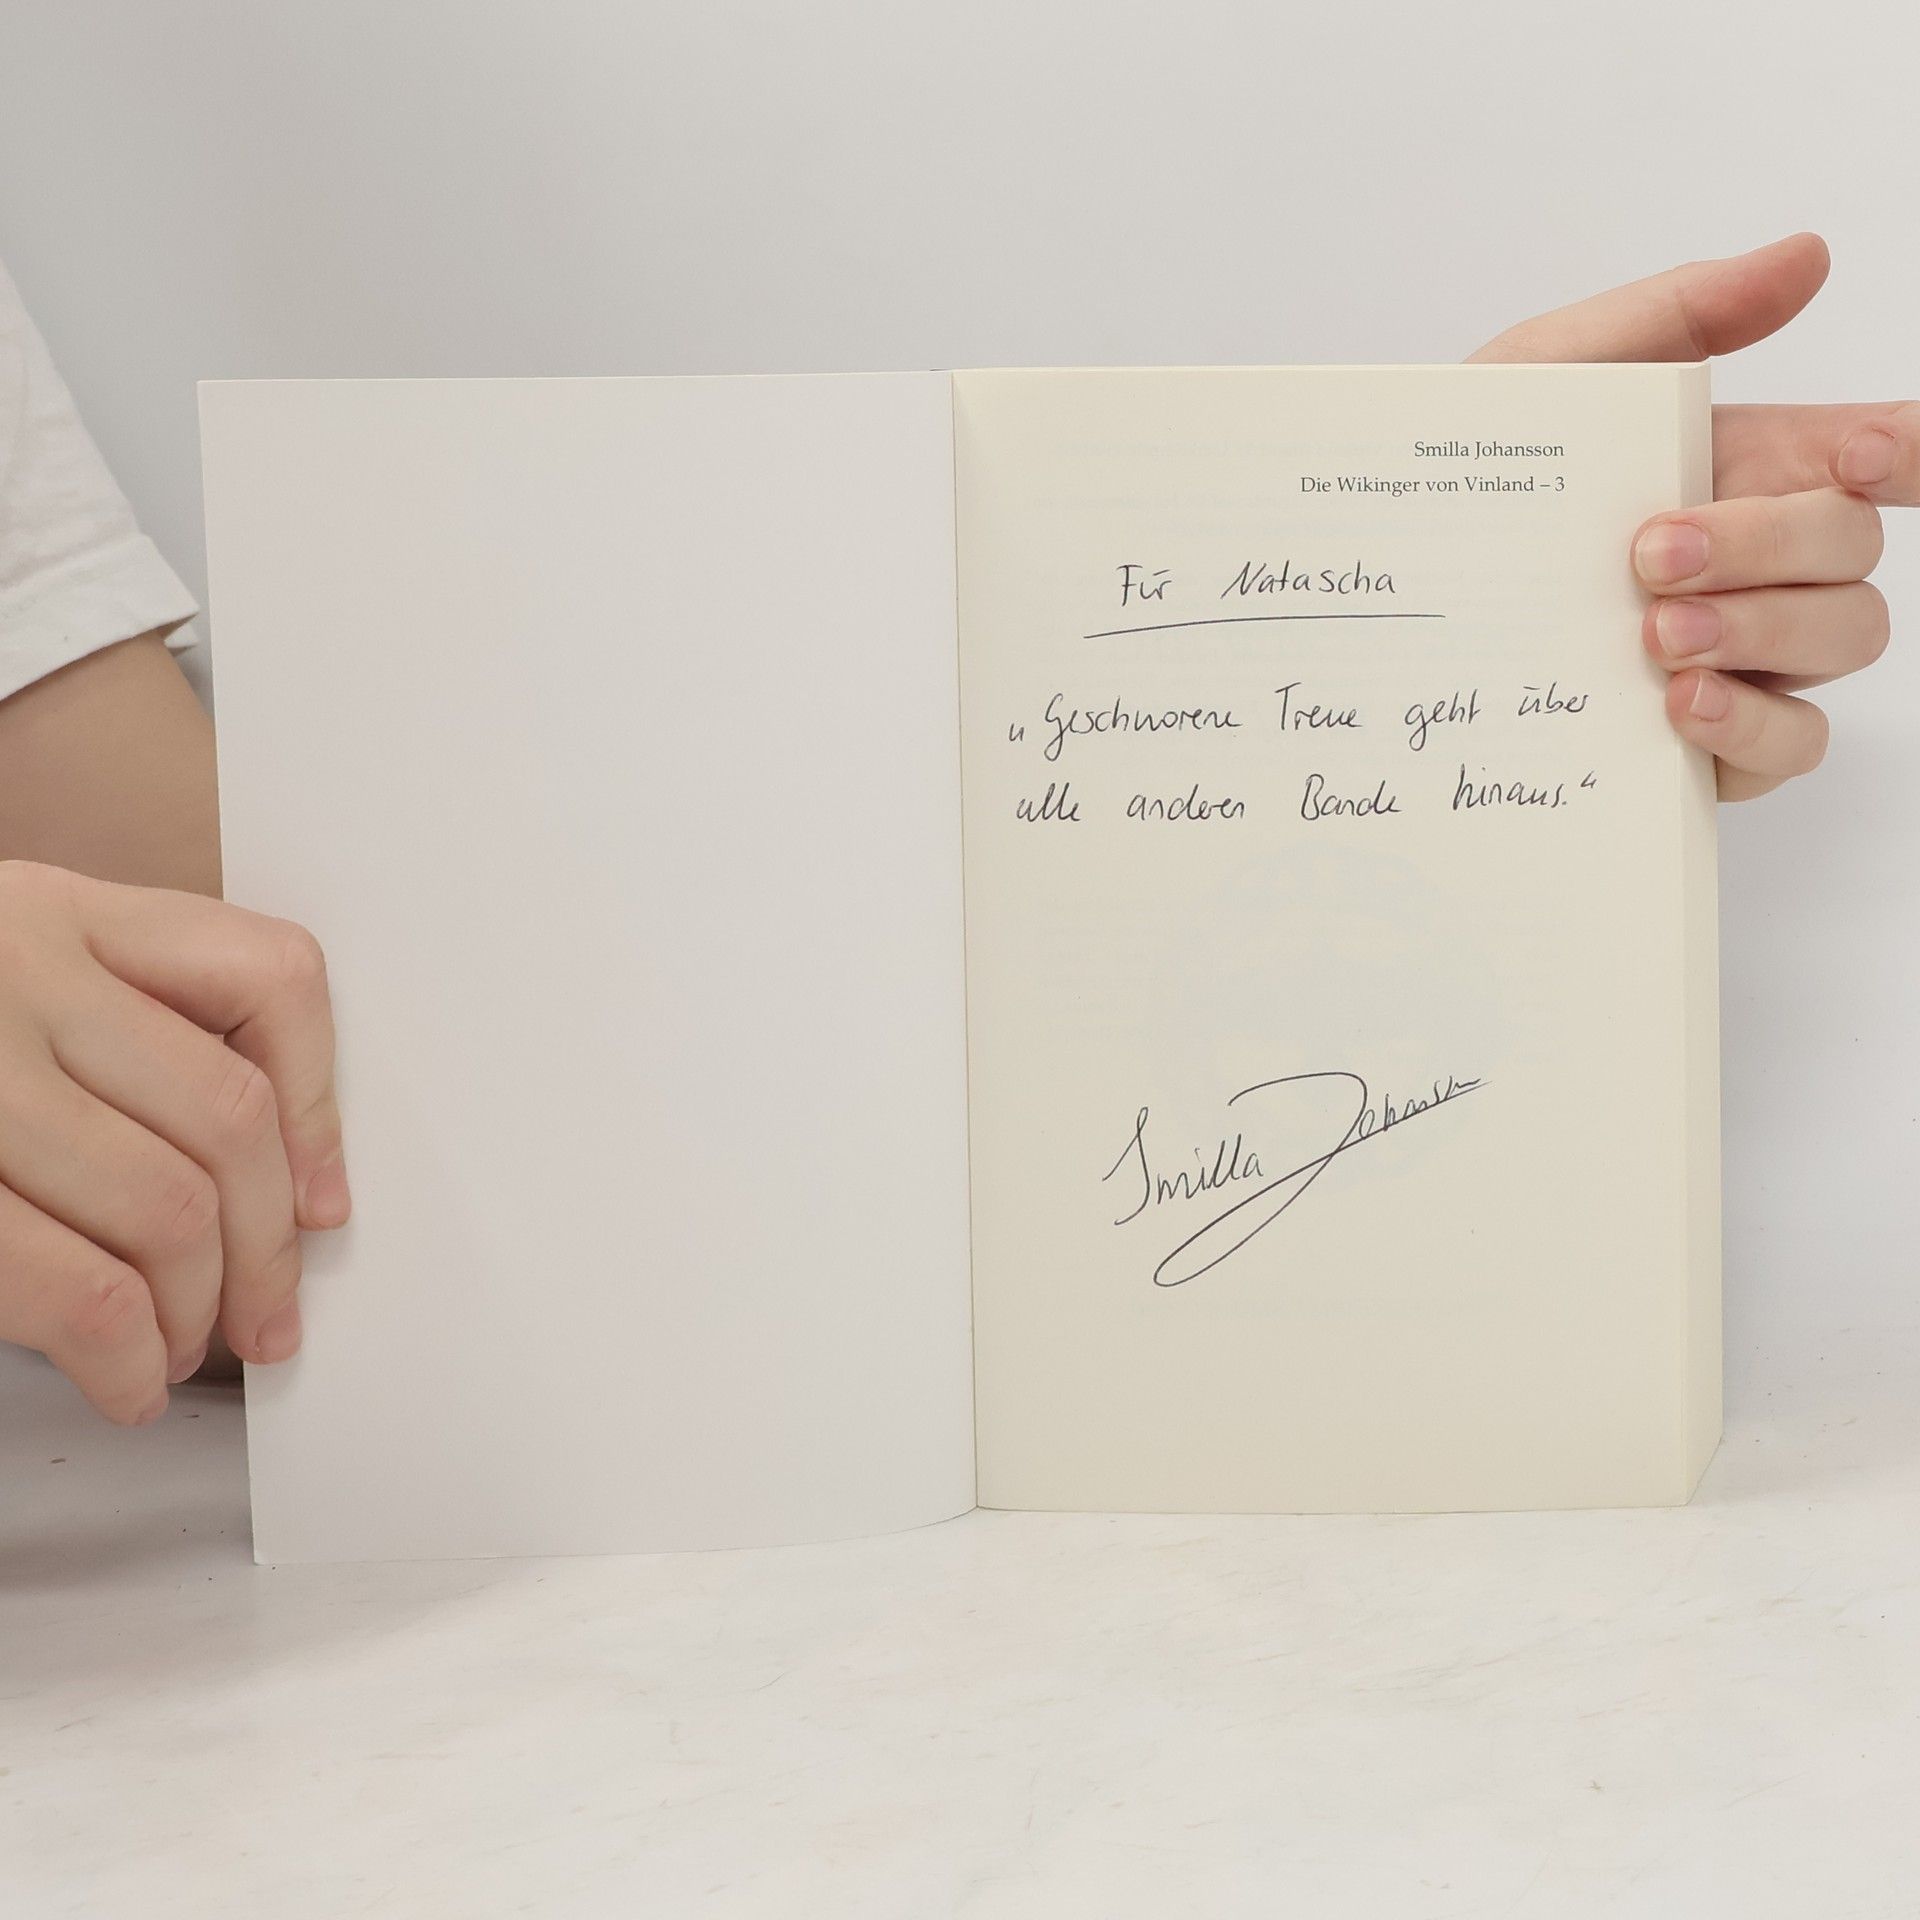 Smilla Johansson
Die Wikinger von Vinland – 3
Für Natascha
„Geschworene Treue geht über
alle anderen Bande hinaus.“
Smilla Johansson